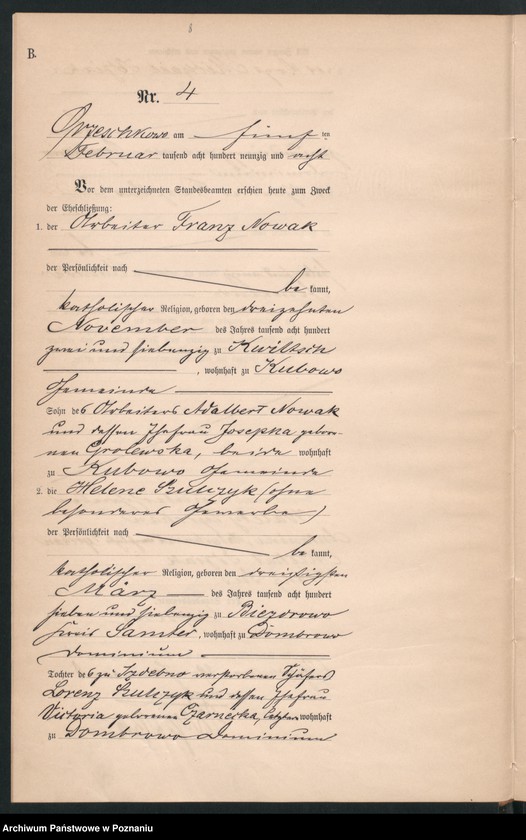 8
B.
Nr. 4
Orzeschkowo am fünf ten
Februar tausend acht hundert neunzig und acht
Vor dem unterzeichneten Standesbeamten erschien heute zum Zweck
der Eheschließung:
1. der Arbeiter Franz Nowak
der Persönlichkeit nach
be kannt,
katholischer Religion, geboren den dreizehnten
November des Jahres tausend acht hundert
zwei und siebenzig zu Kwiltsch
, wohnhaft zu Kubowo
Gemeinde
Sohn des Arbeiters Adalbert Nowak
und dessen Ehefrau Josepha gebor-
nen Grolewska, beide wohnhaft
zu Kubowo Gemeinde
2. die Helene Szulczyk (ohne
besonderes Gewerbe)
der Persönlichkeit nach
be kannt,
katholischer Religion, geboren den dreißigsten
März des Jahres tausend acht hundert
sieben und siebenzig zu Biezdrowo
Kreis Samter, wohnhaft zu Dombrowo
Dominium
Tochter des zu Izdebno verstorbenen Schäfers
Lorenz Szulczyk und dessen Ehefrau
Victoria geborenen Czarnecka, letztere wohnhaft
zu Dombrowo Dominium
Archiwum Państwowe w Poznaniu